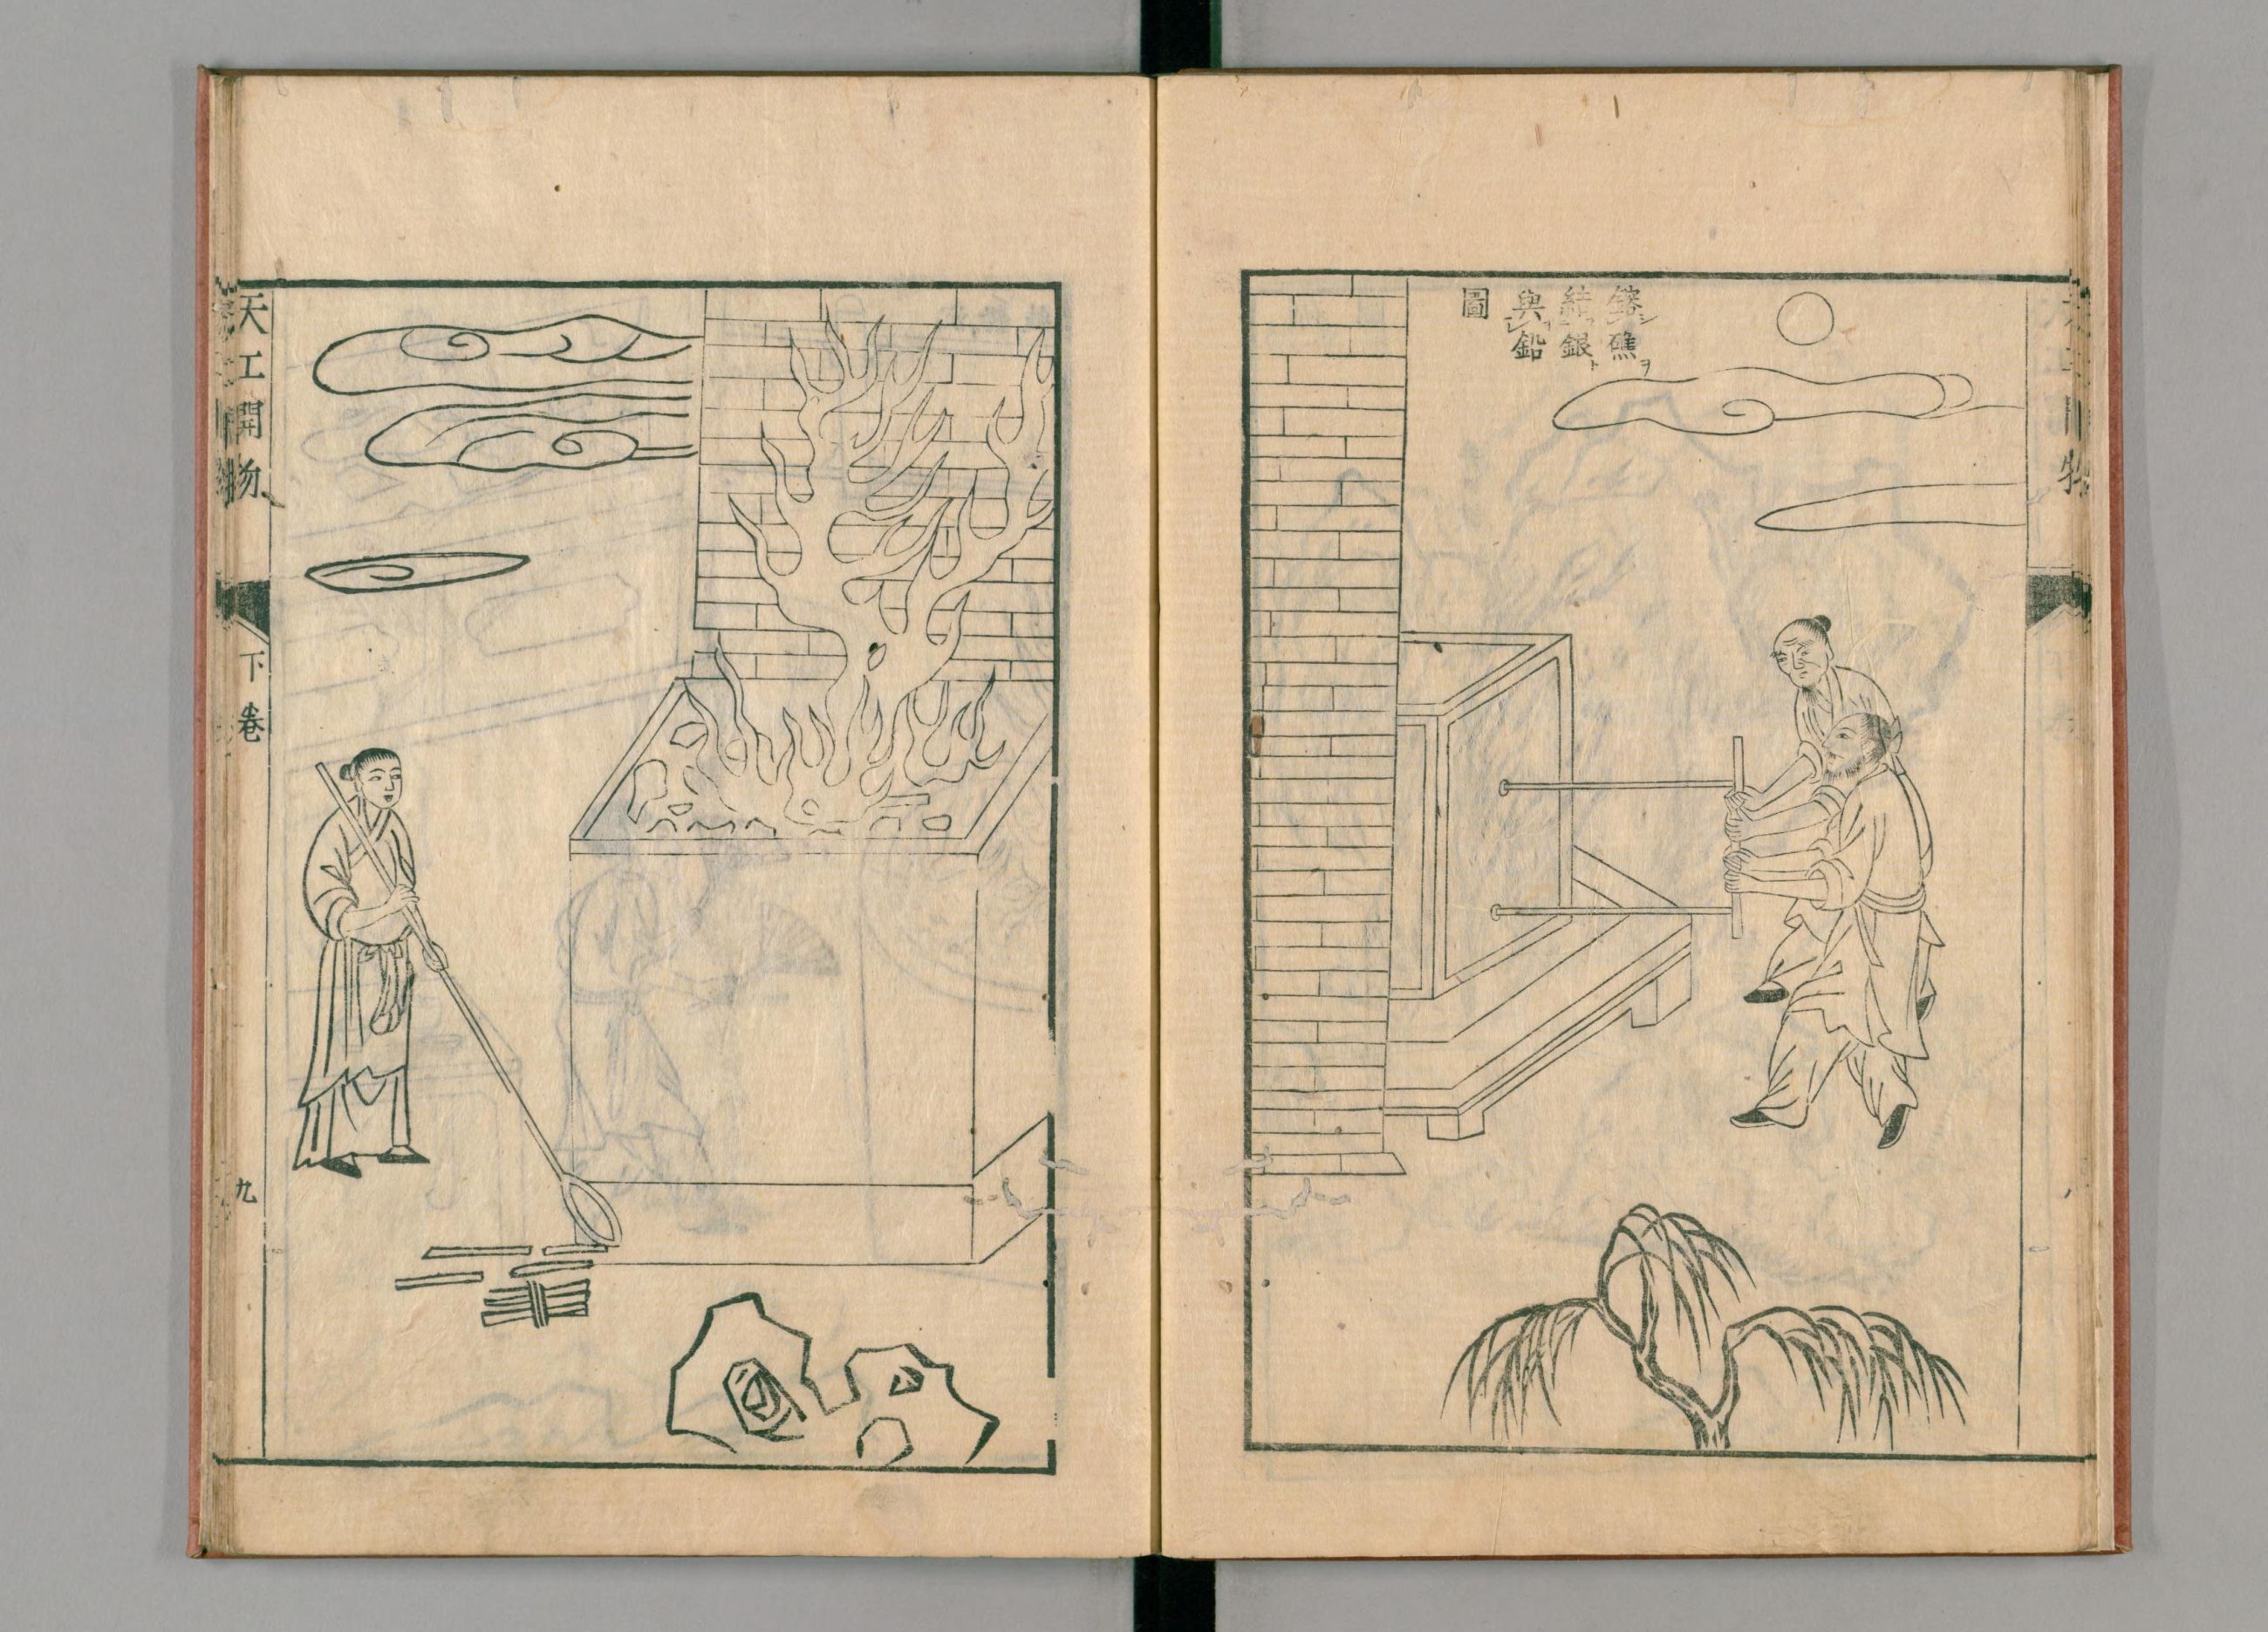 鎔礁
結銀
與鉛
圖
天工開物 下卷 九